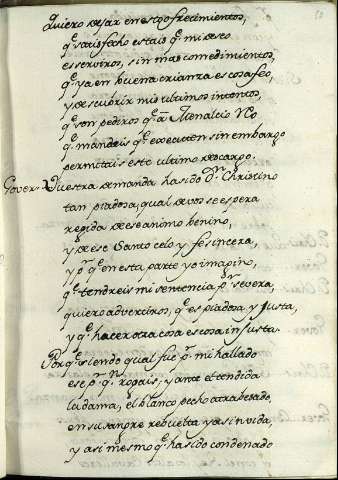 quiero dexar en esto ofrecimientos,
q̃ satisfecho estais q̃ mi deseo
es serviros, sin mas comedimientos,
q̃ ya en buena crianza es cosa feo,
y descubrir mis ultimos intentos,
q̃ son pediros q̃ a
q̃ mandeis q̃ executen sin embargo
permitais este ultimo descargo.
Gover. Vuestra demanda ha sido Dⁿ. Christino
tan piadosa, qual de vos se espera
regida de ese animo benino,
y de ese Santo celo y fe sincera,
y pʳ q̃ en esta parte yo imagino,
q̃ tendreis mi sentencia pʳ severa,
quiero advertiros, q̃ es piadosa y justa,
y q̃ hacer otra cosa es cosa injusta.
Porq̃ siendo qual fue pʳ mi hallado
ese pʳ qⁿ rogais, y ante el tendida
la dama, el blanco pecho atrabesado,
en su sangre rebuelta y asi sin vida,
y asi mesmo q̃ ha sido condenado